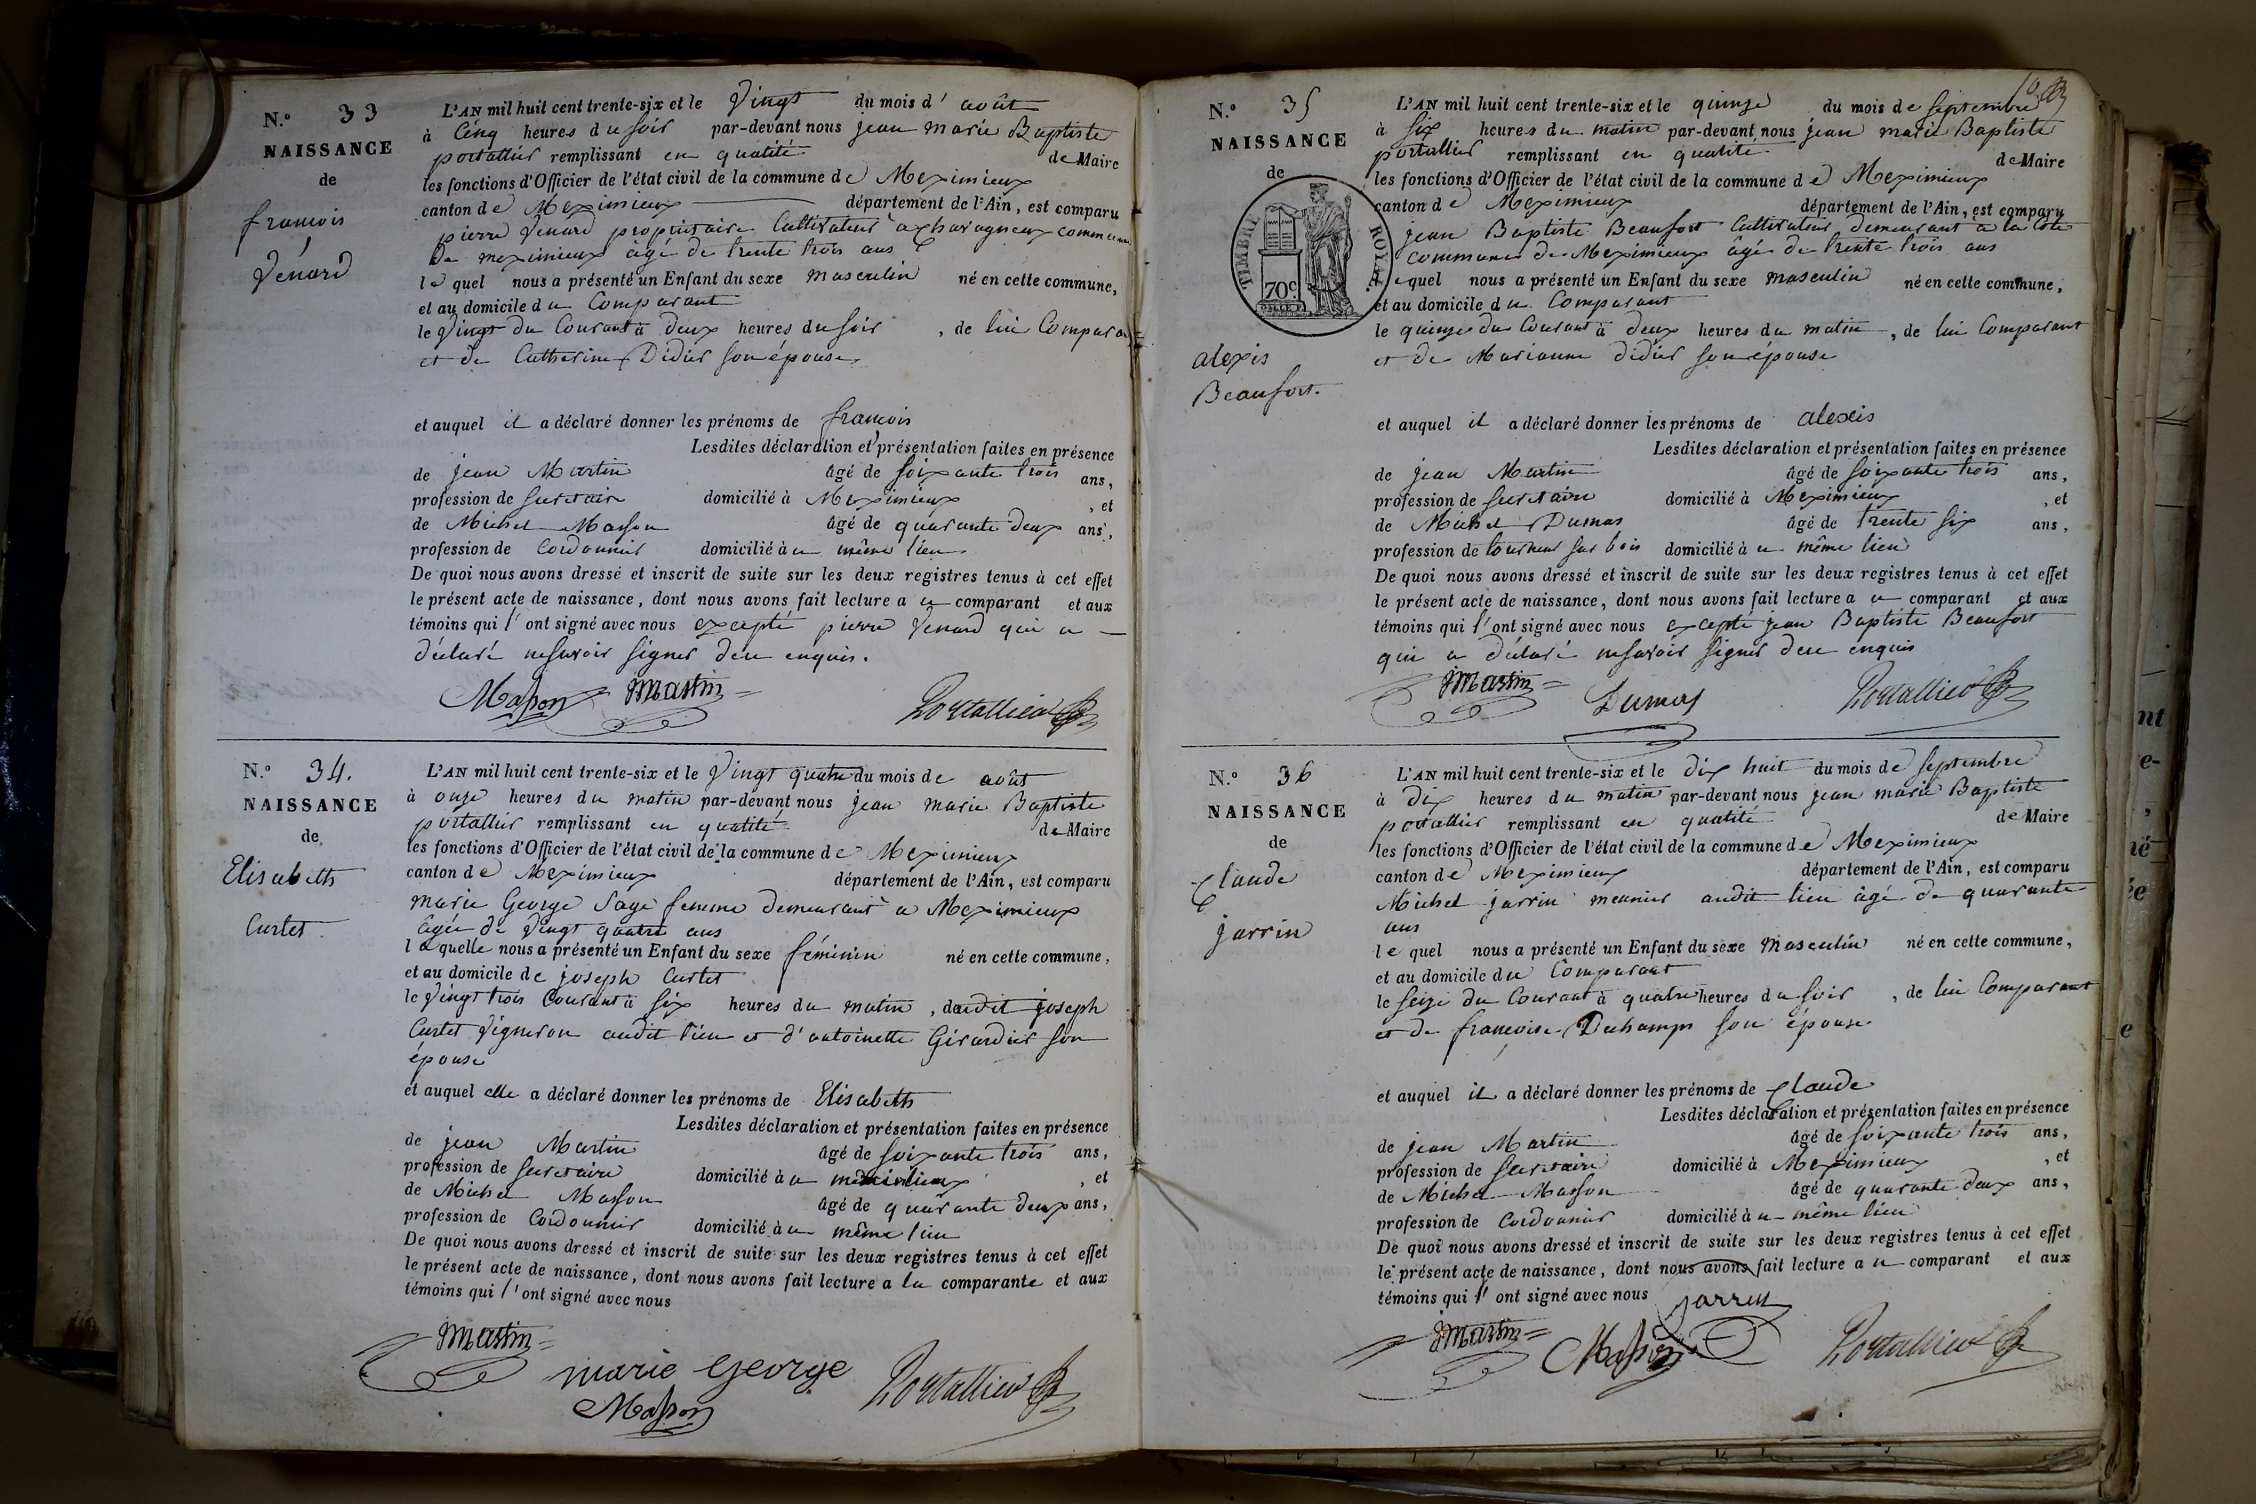 N.° 33
NAISSANCE
de
françois
Vénard
L'AN mil huit cent trente-six et le Vingt du mois d' août
à Cinq heures du soir par-devant nous jean marie Baptiste
portallier remplissant en qualité de Maire
les fonctions d'Officier de l'état civil de la commune de Meximieux
canton de Meximieux département de l'Ain, est comparu
pierre Venard propriétaire Cultivateur à charagneux commune
de meximieux âgé de trente trois ans
lequel nous a présenté un Enfant du sexe masculin né en cette commune,
et au domicile du Comparant
le Vingt du Courant à deux heures du soir , de lui Comparant
et de Catherine Didier son épouse
et auquel il a déclaré donner les prénoms de françois
Lesdites déclaration et présentation faites en présence
de jean Martin âgé de soixante trois ans,
profession de secretaire domicilié à Meximieux , et
de Michel Masson âgé de quarante deux ans,
profession de Cordonnier domicilié à u même lieu
De quoi nous avons dressé et inscrit de suite sur les deux registres tenus à cet effet
le présent acte de naissance, dont nous avons fait lecture a u comparant et aux
témoins qui l' ont signé avec nous excepté pierre Venard qui a
déclaré ne savoir signer de ce enquis.
Masson Martin Portallier
N.° 34.
NAISSANCE
de
Elisabeth
Curtet
L'AN mil huit cent trente-six et le Vingt quatre du mois de août
à onze heures du matin par-devant nous jean marie Baptiste
portallier remplissant en qualité de Maire
les fonctions d'Officier de l'état civil de la commune de Meximieux
canton de Meximieux département de l'Ain, est comparu
marie George Sage femme demeurant a Meximieux
âgée de Vingt quatre ans
laquelle nous a présenté un Enfant du sexe féminin né en cette commune,
et au domicile de joseph Curtet
le Vingt trois Courant à six heures du matin , dudit joseph
Curtet Vigneron audit lieu et d'antoinette Girardier son
épouse
et auquel elle a déclaré donner les prénoms de Elisabeth
Lesdites déclaration et présentation faites en présence
de jean Martin âgé de soixante trois ans,
profession de secretaire domicilié à , et
de Michel Masson âgé de quarante deux ans,
profession de Cordonnier domicilié à u même lieu
De quoi nous avons dressé et inscrit de suite sur les deux registres tenus à cet effet
le présent acte de naissance, dont nous avons fait lecture a la comparante et aux
témoins qui l' ont signé avec nous
Martin
marie George Portallier
Masson
N.° 35
NAISSANCE
de
TIMBRE ROYAL.
70c
alexis
Beaufort.
L'AN mil huit cent trente-six et le quinze du mois de septembre
à six heures du matin par-devant nous jean marie Baptiste
portallier remplissant en qualité de Maire
les fonctions d'Officier de l'état civil de la commune de Meximieux
canton de Meximieux département de l'Ain, est comparu
jean Baptiste Beaufort Cultivateur demeurant à la Côte
commune de Meximieux âgé de trente trois ans
lequel nous a présenté un Enfant du sexe masculin né en cette commune,
et au domicile du Comparant
le quinze du Courant à deux heures du matin , de lui Comparant
et de Marianne didier son épouse
et auquel il a déclaré donner les prénoms de alexis
Lesdites déclaration et présentation faites en présence
de jean Martin âgé de soixante trois ans,
profession de secretaire domicilié à Meximieux , et
de Michel Dumas âgé de trente six ans,
profession de tourneur sur bois domicilié à u même lieu
De quoi nous avons dressé et inscrit de suite sur les deux registres tenus à cet effet
le présent acte de naissance, dont nous avons fait lecture a u comparant et aux
témoins qui l' ont signé avec nous excepté jean Baptiste Beaufort
qui a déclaré ne savoir signer de ce enquis
Martin Dumas Portallier
N.° 36
NAISSANCE
de
Claude
jarrin
L'AN mil huit cent trente-six et le dix huit du mois de septembre
à dix heures du matin par-devant nous jean marie Baptiste
portallier remplissant en qualité de Maire
les fonctions d'Officier de l'état civil de la commune de Meximieux
canton de Meximieux département de l'Ain, est comparu
Michel jarrin meunier audit lieu âgé de quarante
ans
lequel nous a présenté un Enfant du sexe masculin né en cette commune,
et au domicile du Comparant
le seize du Courant à quatre heures du soir , de lui Comparant
et de françoise Duchamps son épouse
et auquel il a déclaré donner les prénoms de Claude
Lesdites déclaration et présentation faites en présence
de jean Martin âgé de soixante trois ans,
profession de secretaire domicilié à Meximieux , et
de Michel Masson âgé de quarante deux ans,
profession de Cordonnier domicilié à u même lieu
De quoi nous avons dressé et inscrit de suite sur les deux registres tenus à cet effet
le présent acte de naissance, dont nous avons fait lecture a u comparant et aux
témoins qui l' ont signé avec nous jarrin
Martin Masson Portallier